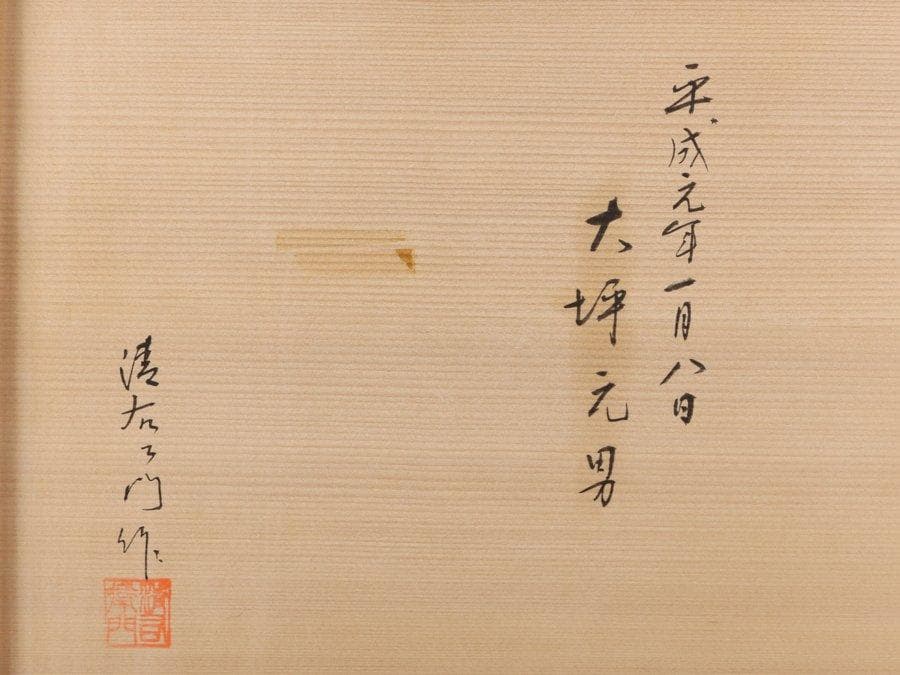 平成元年一月八日
大坪元男
清右ヱ門作
清右衛門